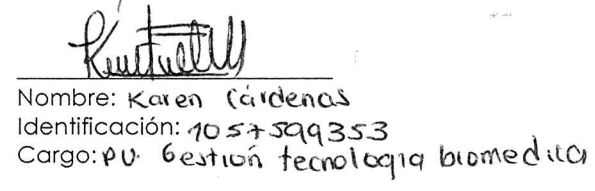 Nombre: Karen Cárdenas
Identificación: 1057599353
Cargo: PU. Gestión tecnologia biomedica